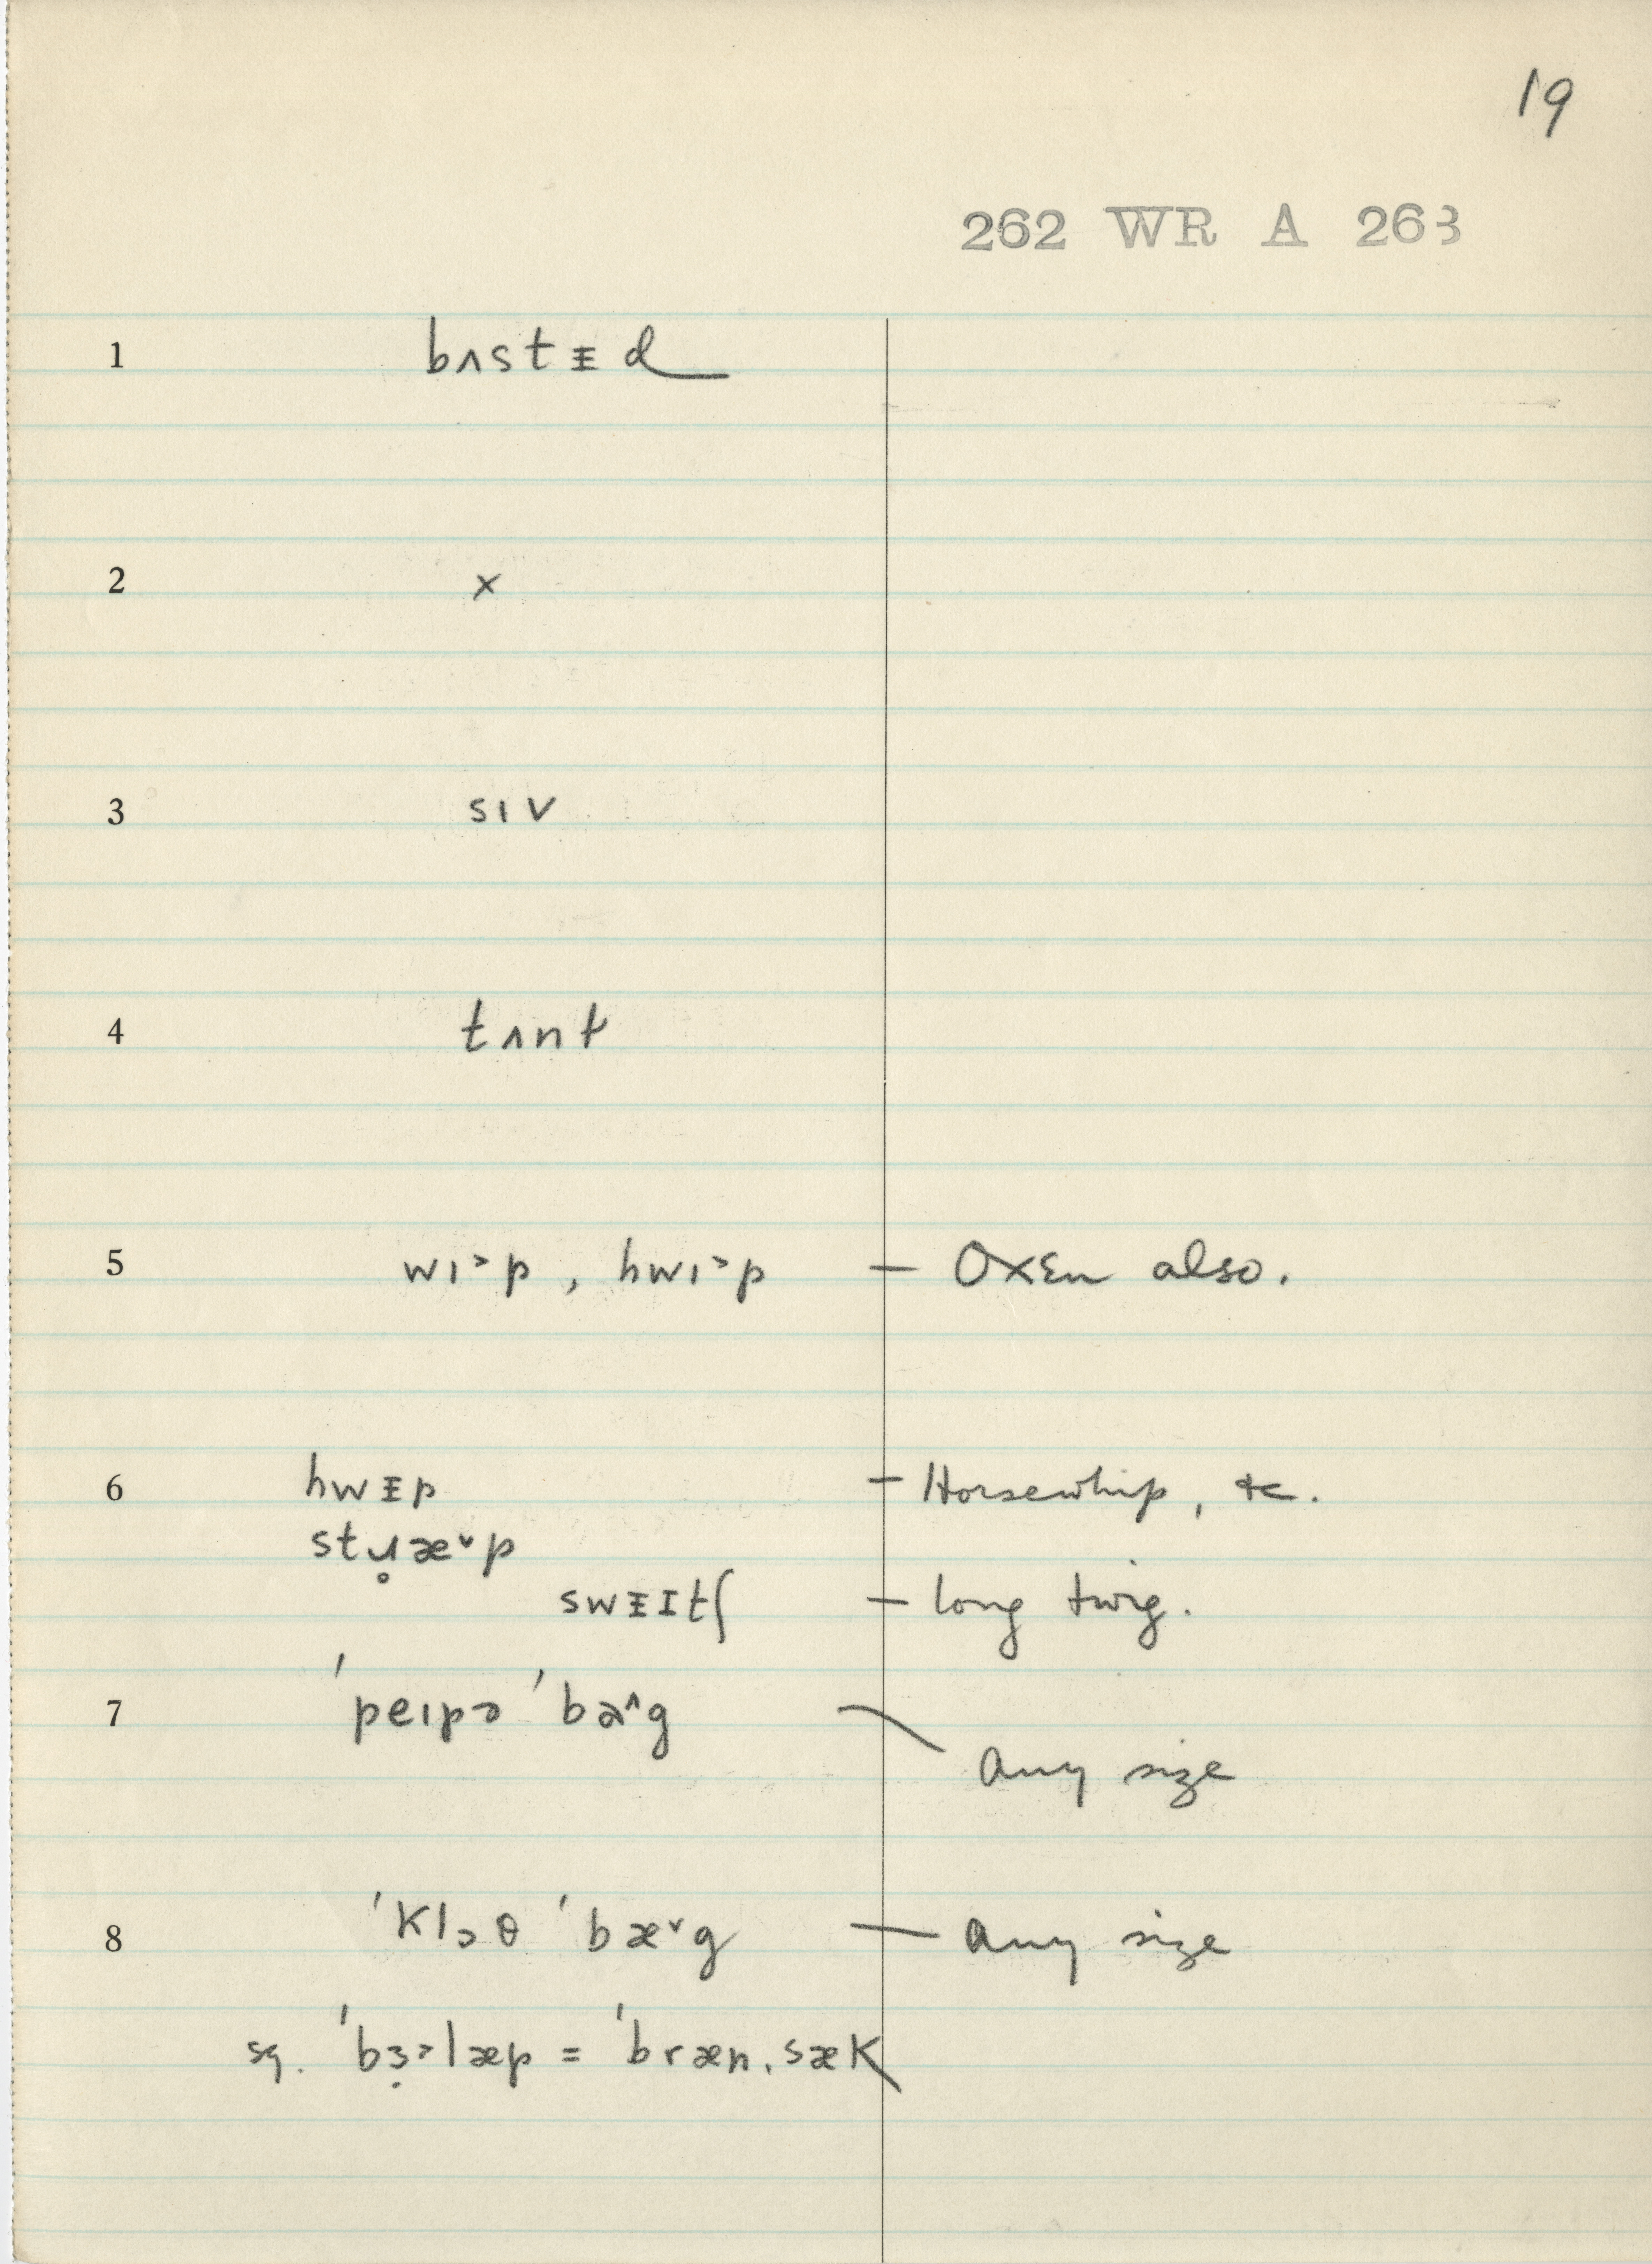 19
262 WR A 263
1 bʌstᵻd
2 x
3 sɪv
4 tʌnt
5 wɪ˃p, hwɪ˃p — Oxen also.
6 hwᵻp — Horsewhip, &c.
stɹ̥æ˅p
swᵻɪtʃ — long twig.
7 ˈpeɪpə ˈbæ˄g — any size
8 ˈklɔθ ˈbæ˅g — any size
sq. ˈbɜ̣˃læp = ˈbræn,sæk